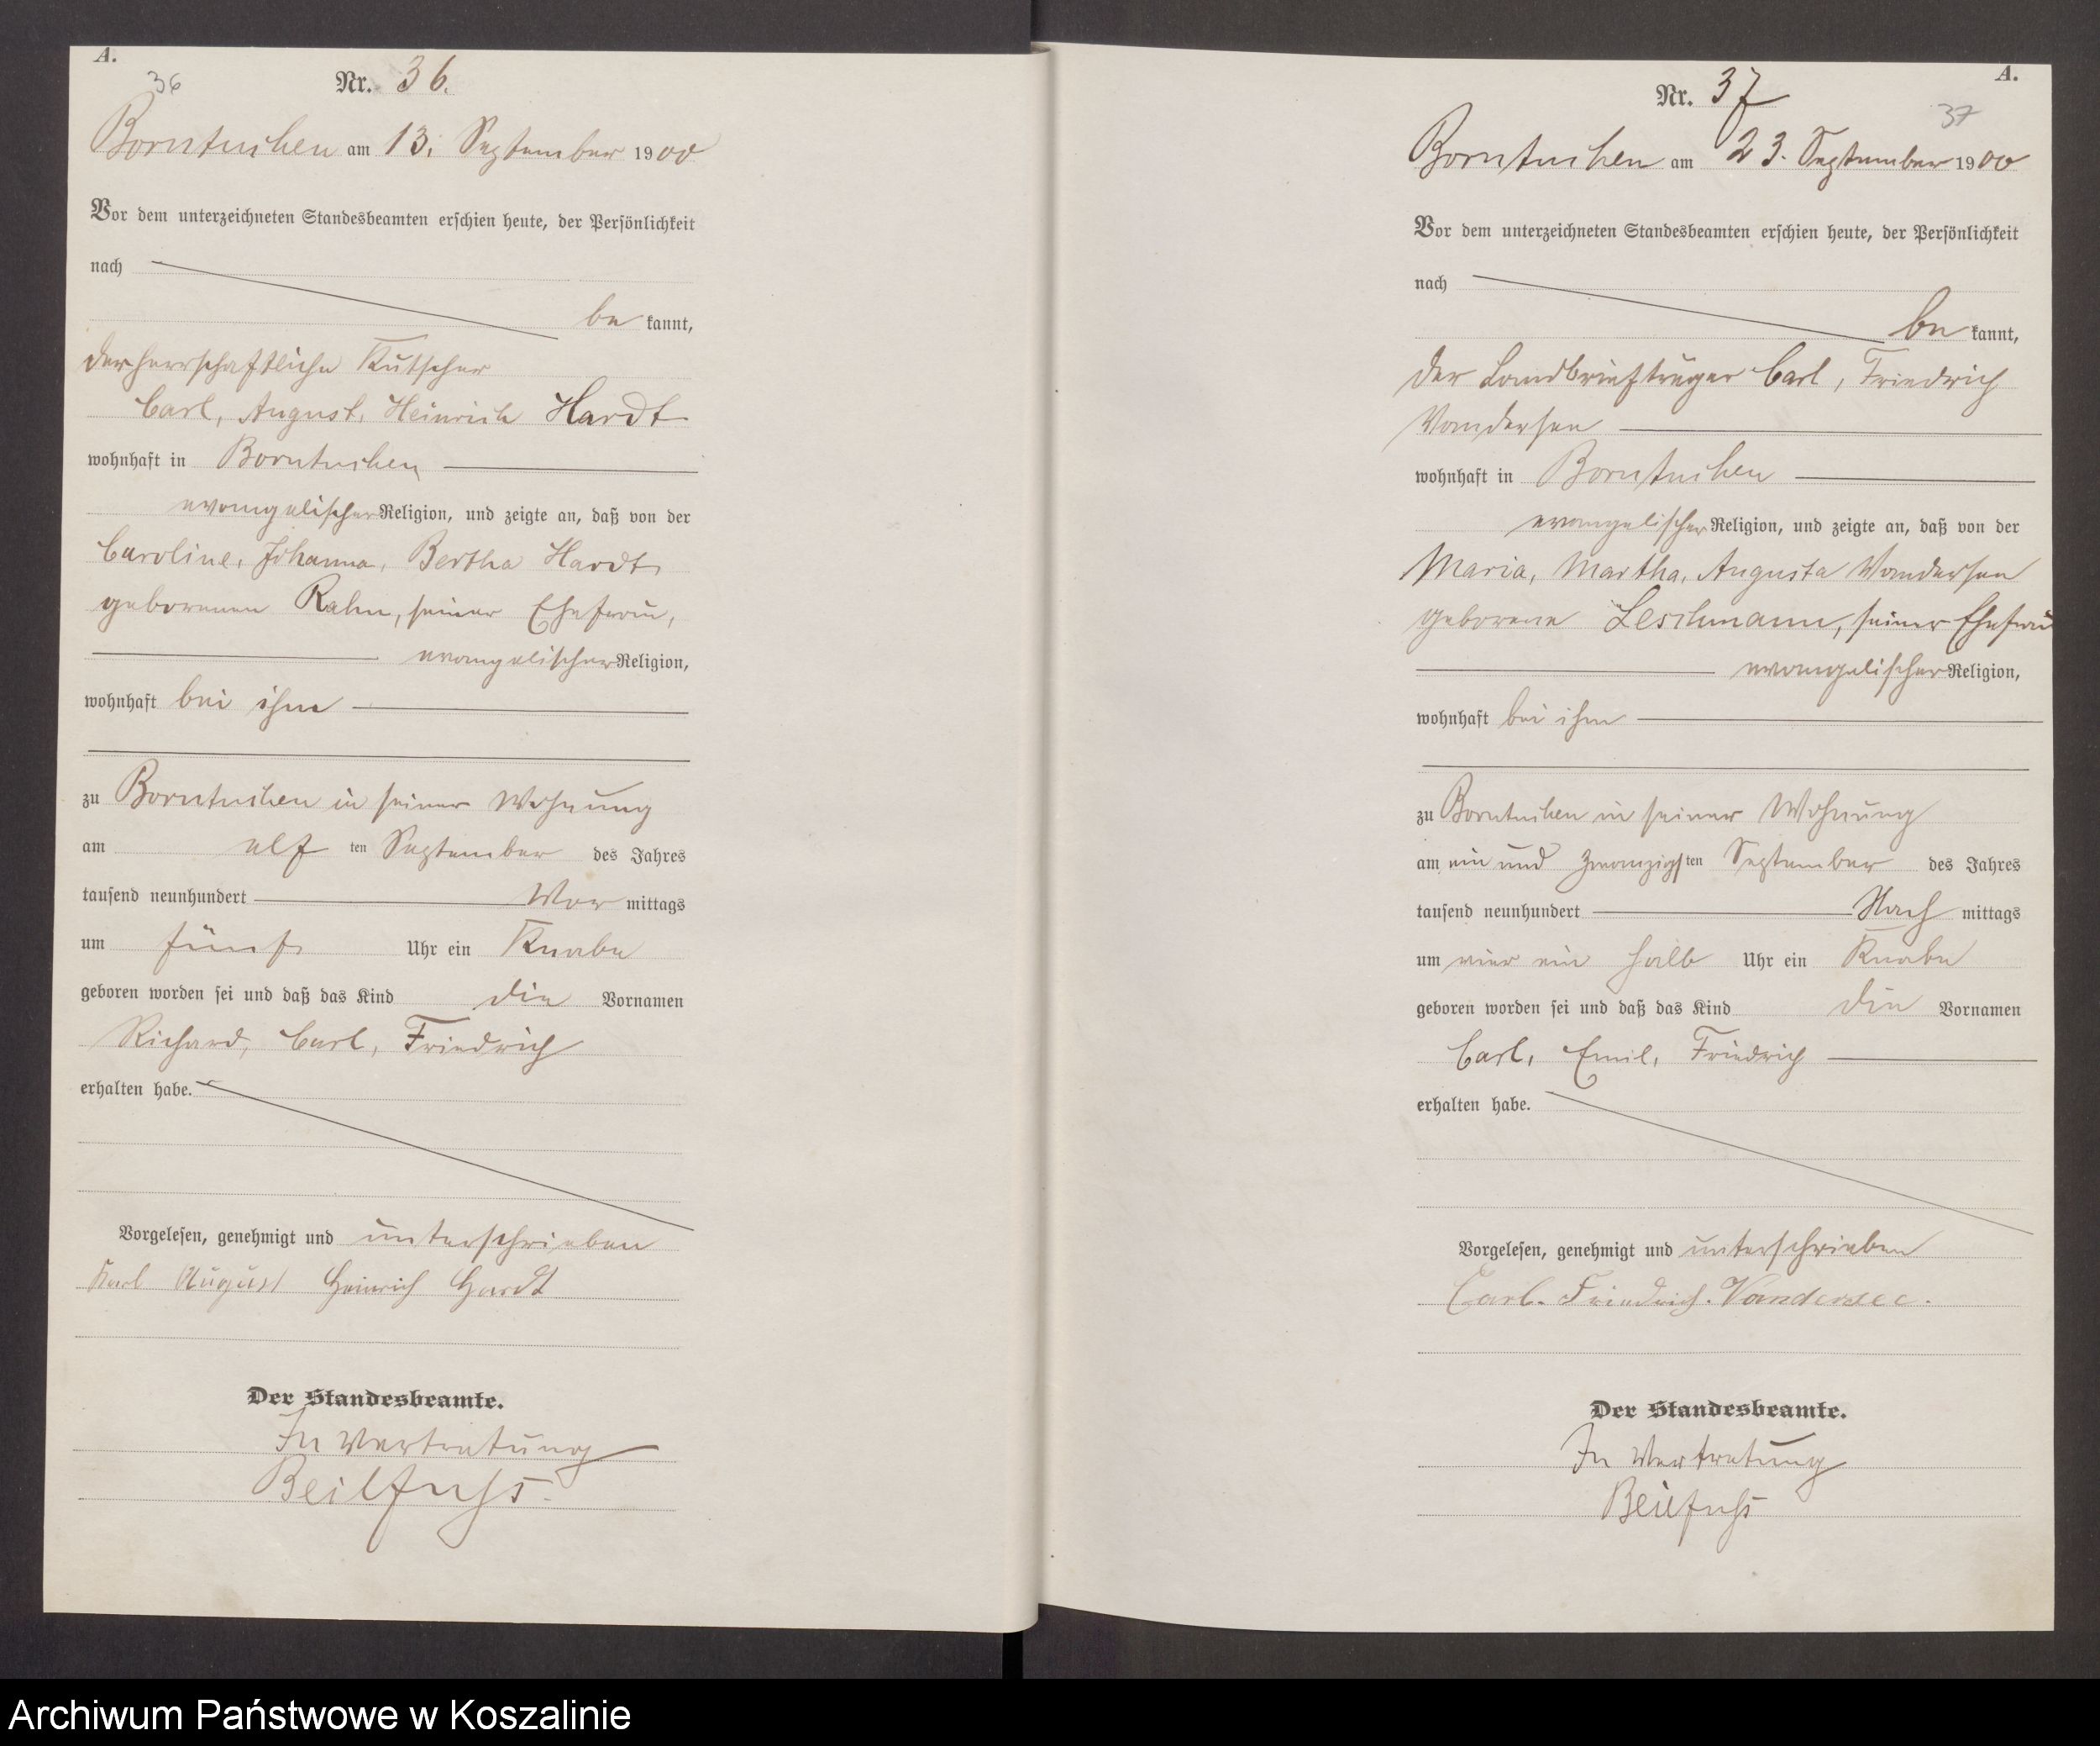 A.
36
Nr. 36.
Borntuchen am 13. September 1900
Vor dem unterzeichneten Standesbeamten erschien heute, der Persönlichkeit
nach
be kannt,
der herrschaftliche Kutscher
Carl, August, Heinrich Hardt
wohnhaft in Borntuchen
evangelischer Religion, und zeigte an, daß von der
Caroline, Johanna, Bertha Hardt
geborenen Rahn, seiner Ehefrau,
evangelischer Religion,
wohnhaft bei ihm
zu Borntuchen in seiner Wohnung
am elf ten September des Jahres
tausend neunhundert Vor mittags
um fünf Uhr ein Knabe
geboren worden sei und daß das Kind die Vornamen
Richard, Carl, Friedrich
erhalten habe.
Vorgelesen, genehmigt und unterschrieben
Karl August Heinrich Hardt
Der Standesbeamte.
In Vertretung
Beilfuss.
A.
Nr. 37
37
Borntuchen am 23. September 1900
Vor dem unterzeichneten Standesbeamten erschien heute, der Persönlichkeit
nach
be kannt,
der Landbriefträger Carl, Friedrich
Vandersee
wohnhaft in Borntuchen
evangelischer Religion, und zeigte an, daß von der
Maria, Martha, Augusta Vandersee
geborene Leschmann, seiner Ehefrau
evangelischer Religion,
wohnhaft bei ihm
zu Borntuchen in seiner Wohnung
am ein und zwanzigs ten September des Jahres
tausend neunhundert Nach mittags
um vier ein halb Uhr ein Knabe
geboren worden sei und daß das Kind die Vornamen
Carl, Emil, Friedrich
erhalten habe.
Vorgelesen, genehmigt und unterschrieben
Carl. Friedrich. Vandersee.
Der Standesbeamte.
In Vertretung
Beilfuss
Archiwum Państwowe w Koszalinie